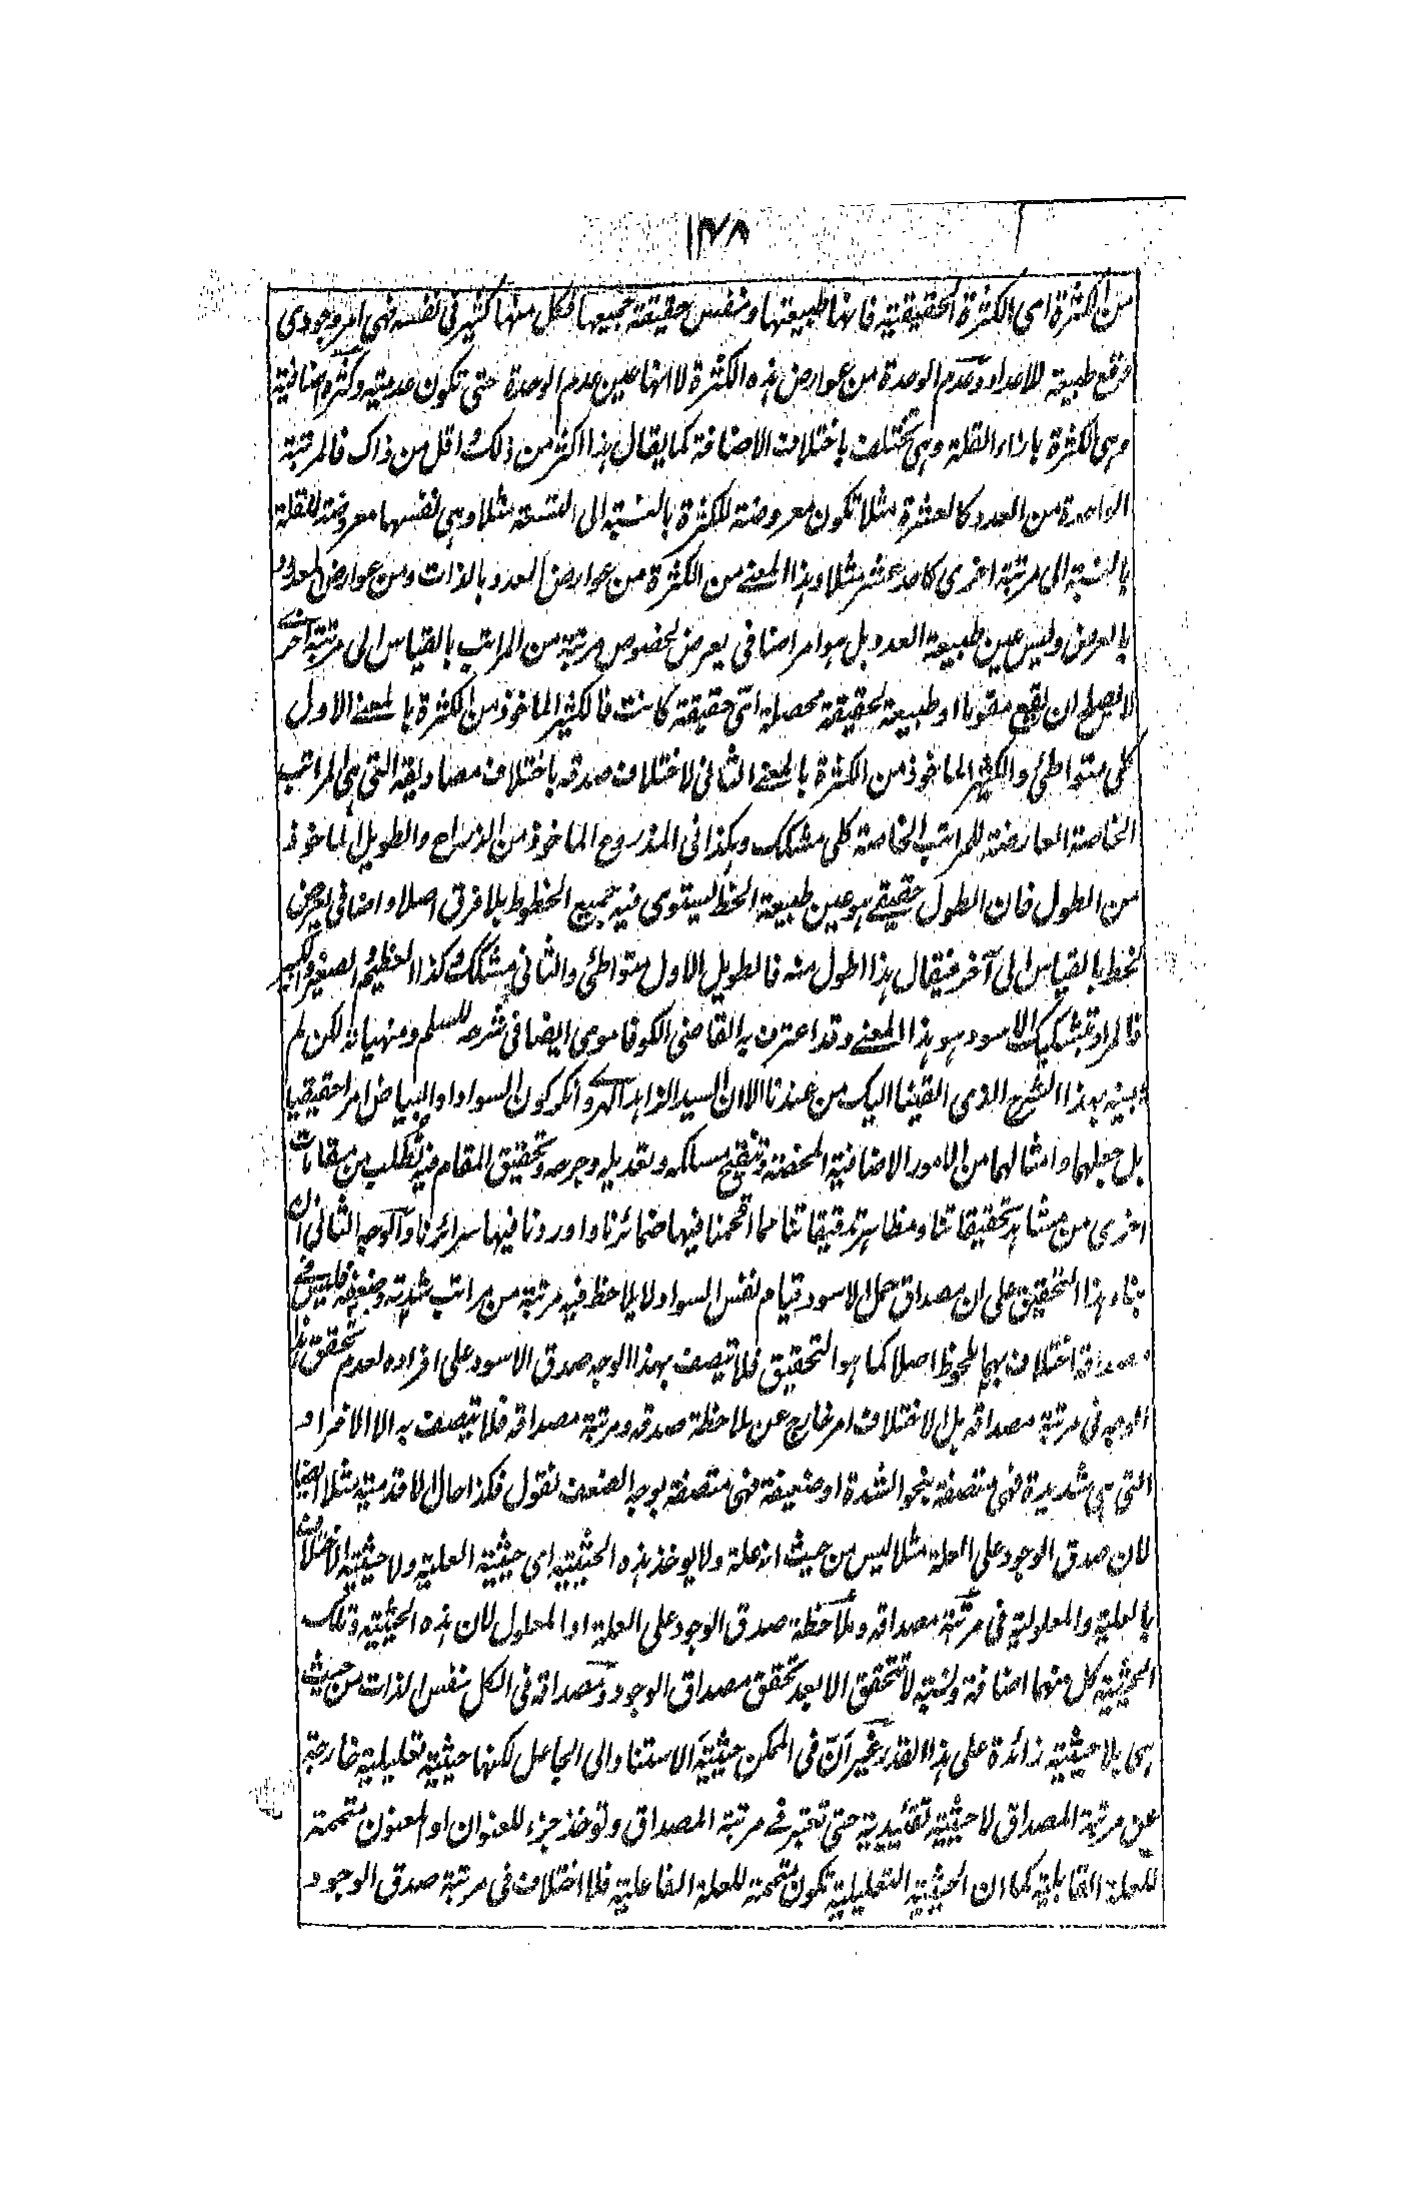 ١٣٨
من الكثرة اى الكثرة الحقيقية فانها طبيعتها ونفس حقيقة جميعها فكل منها كثير فى نفسه فهى امر وجودى
طبيعة للاعداد وعدم الوحدة من عوارض هذه الكثرة لا انها عين عدم الوحدة حتى تكون عدمية وكثرة اضافية
وهى الكثرة بازاء القلة وهى تختلف باختلاف الاضافة كما يقال هذا اكثر من ذلك واقل من ذاك فالمرتبة
الواحدة من العدد كالعشرة مثلا تكون معروضة للكثرة بالنسبة الى التسعة مثلا وهى نفسها معروضة للقلة
بالنسبة الى مرتبة اخرى كاحد عشر مثلا وهذا المعنے من الكثرة من عوارض العدد بالذات ومن عوارض المعدود
بالعرض وليس عين طبيعة العدد بل هو امر اضافى يعرض لخصوص مرتبة من المراتب بالقياس الى مرتبة اخرے
لا يصلح ان يقع مقوما او طبيعة لحقيقة محصلة اىّ حقيقة كانت فالكثير الماخوذ من الكثرة بالمعنے الاول
كلى متواطئ والكثير الماخوذ من الكثرة بالمعنے الثانى لاختلاف صدقه باختلاف مصاديقه التى هى المراتب
الخاصة العارضة للمراتب الخاصة كلى مشكك وهكذا فى المذروع الماخوذ من الذراع والطويل الماخوذ
من الطول فان الطول حقيقے هو عين طبيعة الخط ليستوى فيه جميع الخطوط بلا فرق اصلا واضافى يعرض
لخط بالقياس الى آخر فيقال هذا اطول منه فالطويل الاول متواطئ والثانى مشكك وكذا العظيم والصغير والكبير
فالمراد بتشكيك الاسود هو بهذا المعنے وقد اعترف به القاضى الكوفاموى ايضا فى شرحه للسلم ومنهياته لكن لم
يبينه بهذا الشرح الذى القينا اليك من عندنا الا ان السيد الزاهد الهروے انكر كون السواد او البياض امرا حقيقيا
بل جعلهما وامثالهما من الامور الاضافية المحضة وتنقيح مسلكه وتعديله وجرحه وتحقيق المقام فيه يطلب من مقامات
اخرى من مشاهد تحقيقاتنا ومظاهر تدقيقاتنا مما اقحمنا فيها ضمائرنا واوردنا فيها سرائرنا والوجه الثانى ان
بناء هذا التحقيق على ان مصداق حمل الاسود قيام نفس السواد لا يلاحظ فيه مرتبة من مراتب شدته وضعفه فليس فے
مصداقه اختلاف بهما ملحوظ اصلا كما هو التحقيق فلا تيصف بهذا الوجه صدق الاسود على افراده لعدم تحقق هذا
الوجه فى مرتبة مصداقه بل الاختلاف امر خارج عن ملاحظة صدقه ومرتبة مصداقه فلا تيصف به الا الافراد
التى هى شديدة فهى متصفة بنحو الشدة او ضعيفة فهى متصفة بوجه الضعف نقول فكذا حال الاقدمية مثلا ايضا
لان صدق الوجود على العلة مثلا ليس من حيث انه علة ولا يوخذ هذه الحيثية اى حيثية العلية ولا حيثية الاختلاف
بالعلية والمعلولية فى مرتبة مصداقه وملاحظة صدق الوجود على العلة او المعلول لان هذه الحيثية وتلك
الحيثية كل منهما اضافة ونسبة لا تتحقق الا بعد تحقق مصداق الوجود ومصداقه فى الكل نفس الذات من حيث
هى بلا حيثية زائدة على هذا القدر غير انّ فى الممكن حيثية الاستناد الى الجاعل لكنها حيثية تعليلية خارجة
عن مرتبة المصداق لا حيثية تقييدية حتى تعتبر فے مرتبة المصداق وتوخذ جزء للعنوان او المعنون متممة
للعلة القابلية كما ان الحيثية التعليلية تكون متممة للعلة الفاعلية فلا اختلاف فى مرتبة صدق الوجود